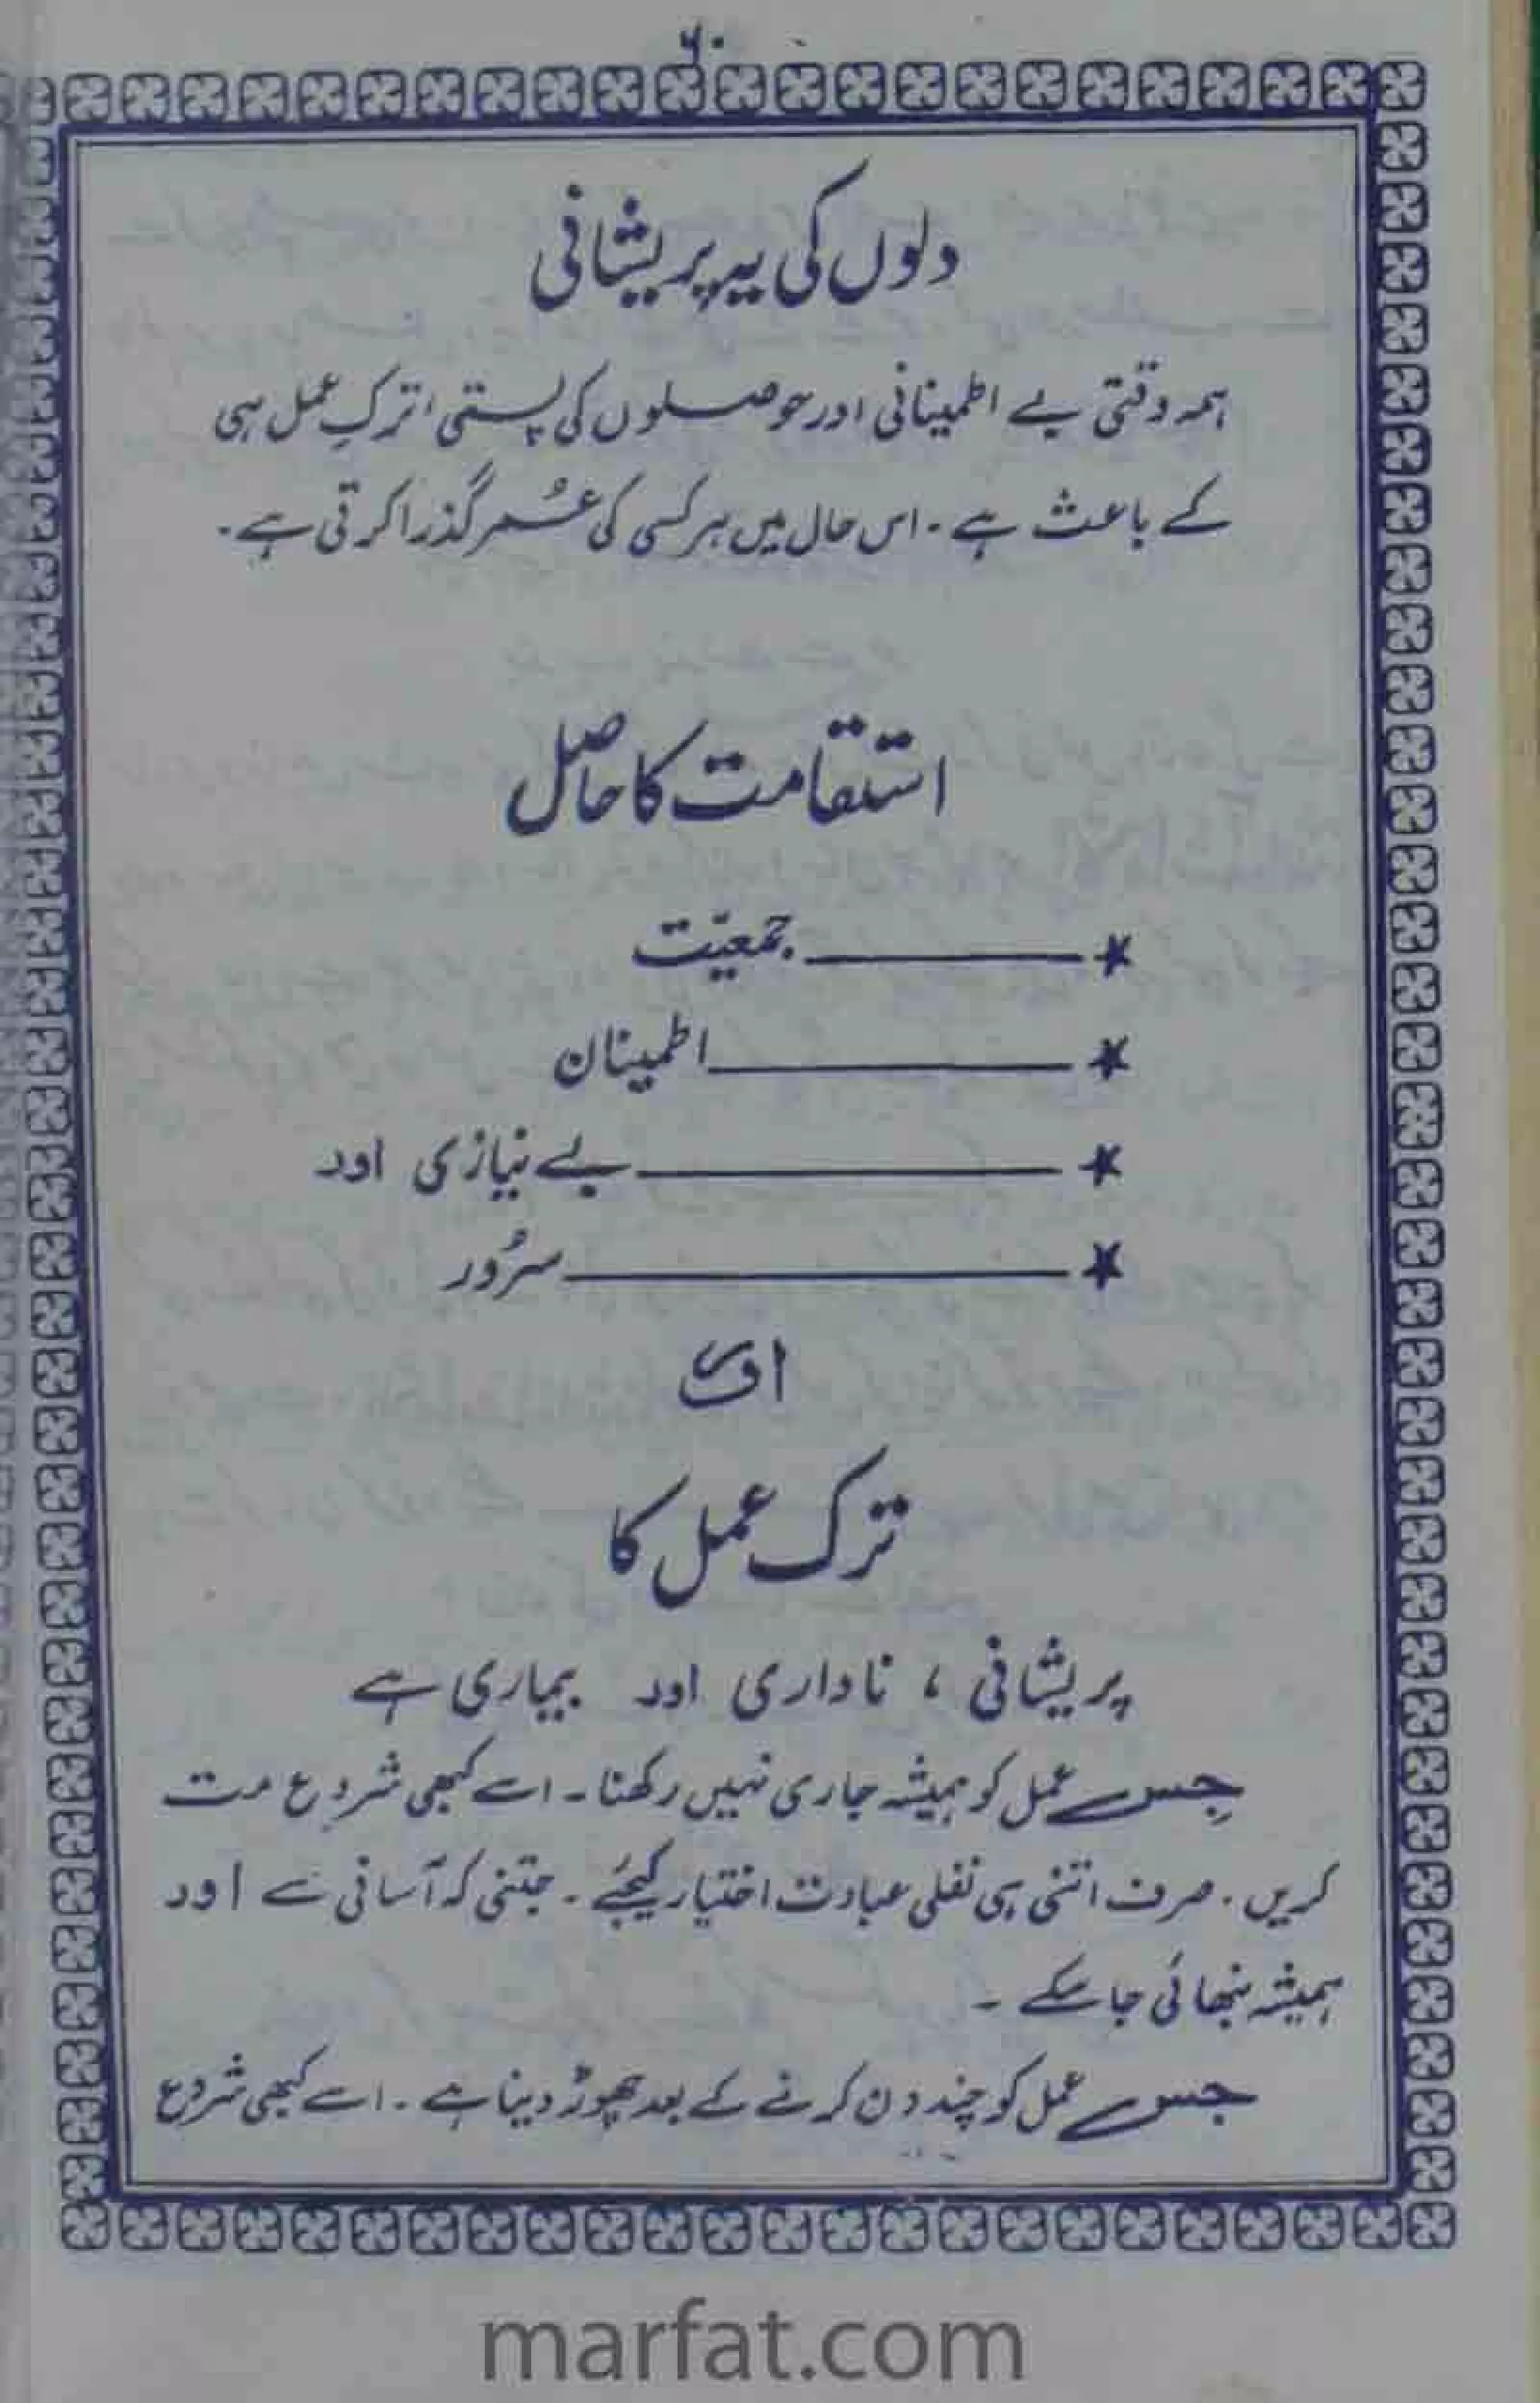 دلوں کی یہ پریشانی
ہمہ وقتی بے اطمینانی اور حوصلوں کی پستی، ترکِ عمل ہی
کے باعث ہے۔ اس حال میں ہر کسی کی عُمر گذرا کرتی ہے۔
استقامت کا حاصل
★ ــــــــ جمعیّت
★ ــــــــ اطمینان
★ ــــــــ بے نیازی اور
★ ــــــــ سرُور
اور
ترک عمل کا
پریشانی ، ناداری اور بیماری ہے
جِس عمل کو ہمیشہ جاری نہیں رکھنا۔ اسے کبھی شروع مت
کریں۔ صرف اتنی ہی نفلی عبادت اختیار کیجئے۔ جتنی کہ آسانی سے اور
ہمیشہ نبھائی جا سکے ۔
جس عمل کو چند دن کرنے کے بعد چھوڑ دینا ہے۔ اسے کبھی شروع
marfat.com